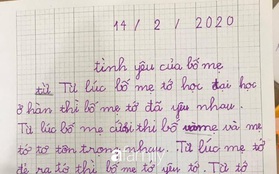 14 / 2 / 2020
tình yêu của bố mẹ
từ Từ lúc bố mẹ tớ học đại học
ở hàn thì bố mẹ tớ đã yêu nhau.
Từ lúc bố mẹ cưới thì bố và mẹ
tớ tôn trọng nhau. Từ lúc mẹ tớ
đẻ ra tớ thì bố mẹ tớ yêu tớ. Từ tớ
afamily